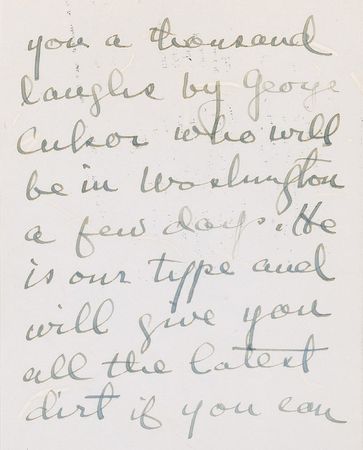 you a thousand
laughs by George
Cukor who will
be in Washington
a few days. He
is our type and
will give you
all the latest
dirt if you can